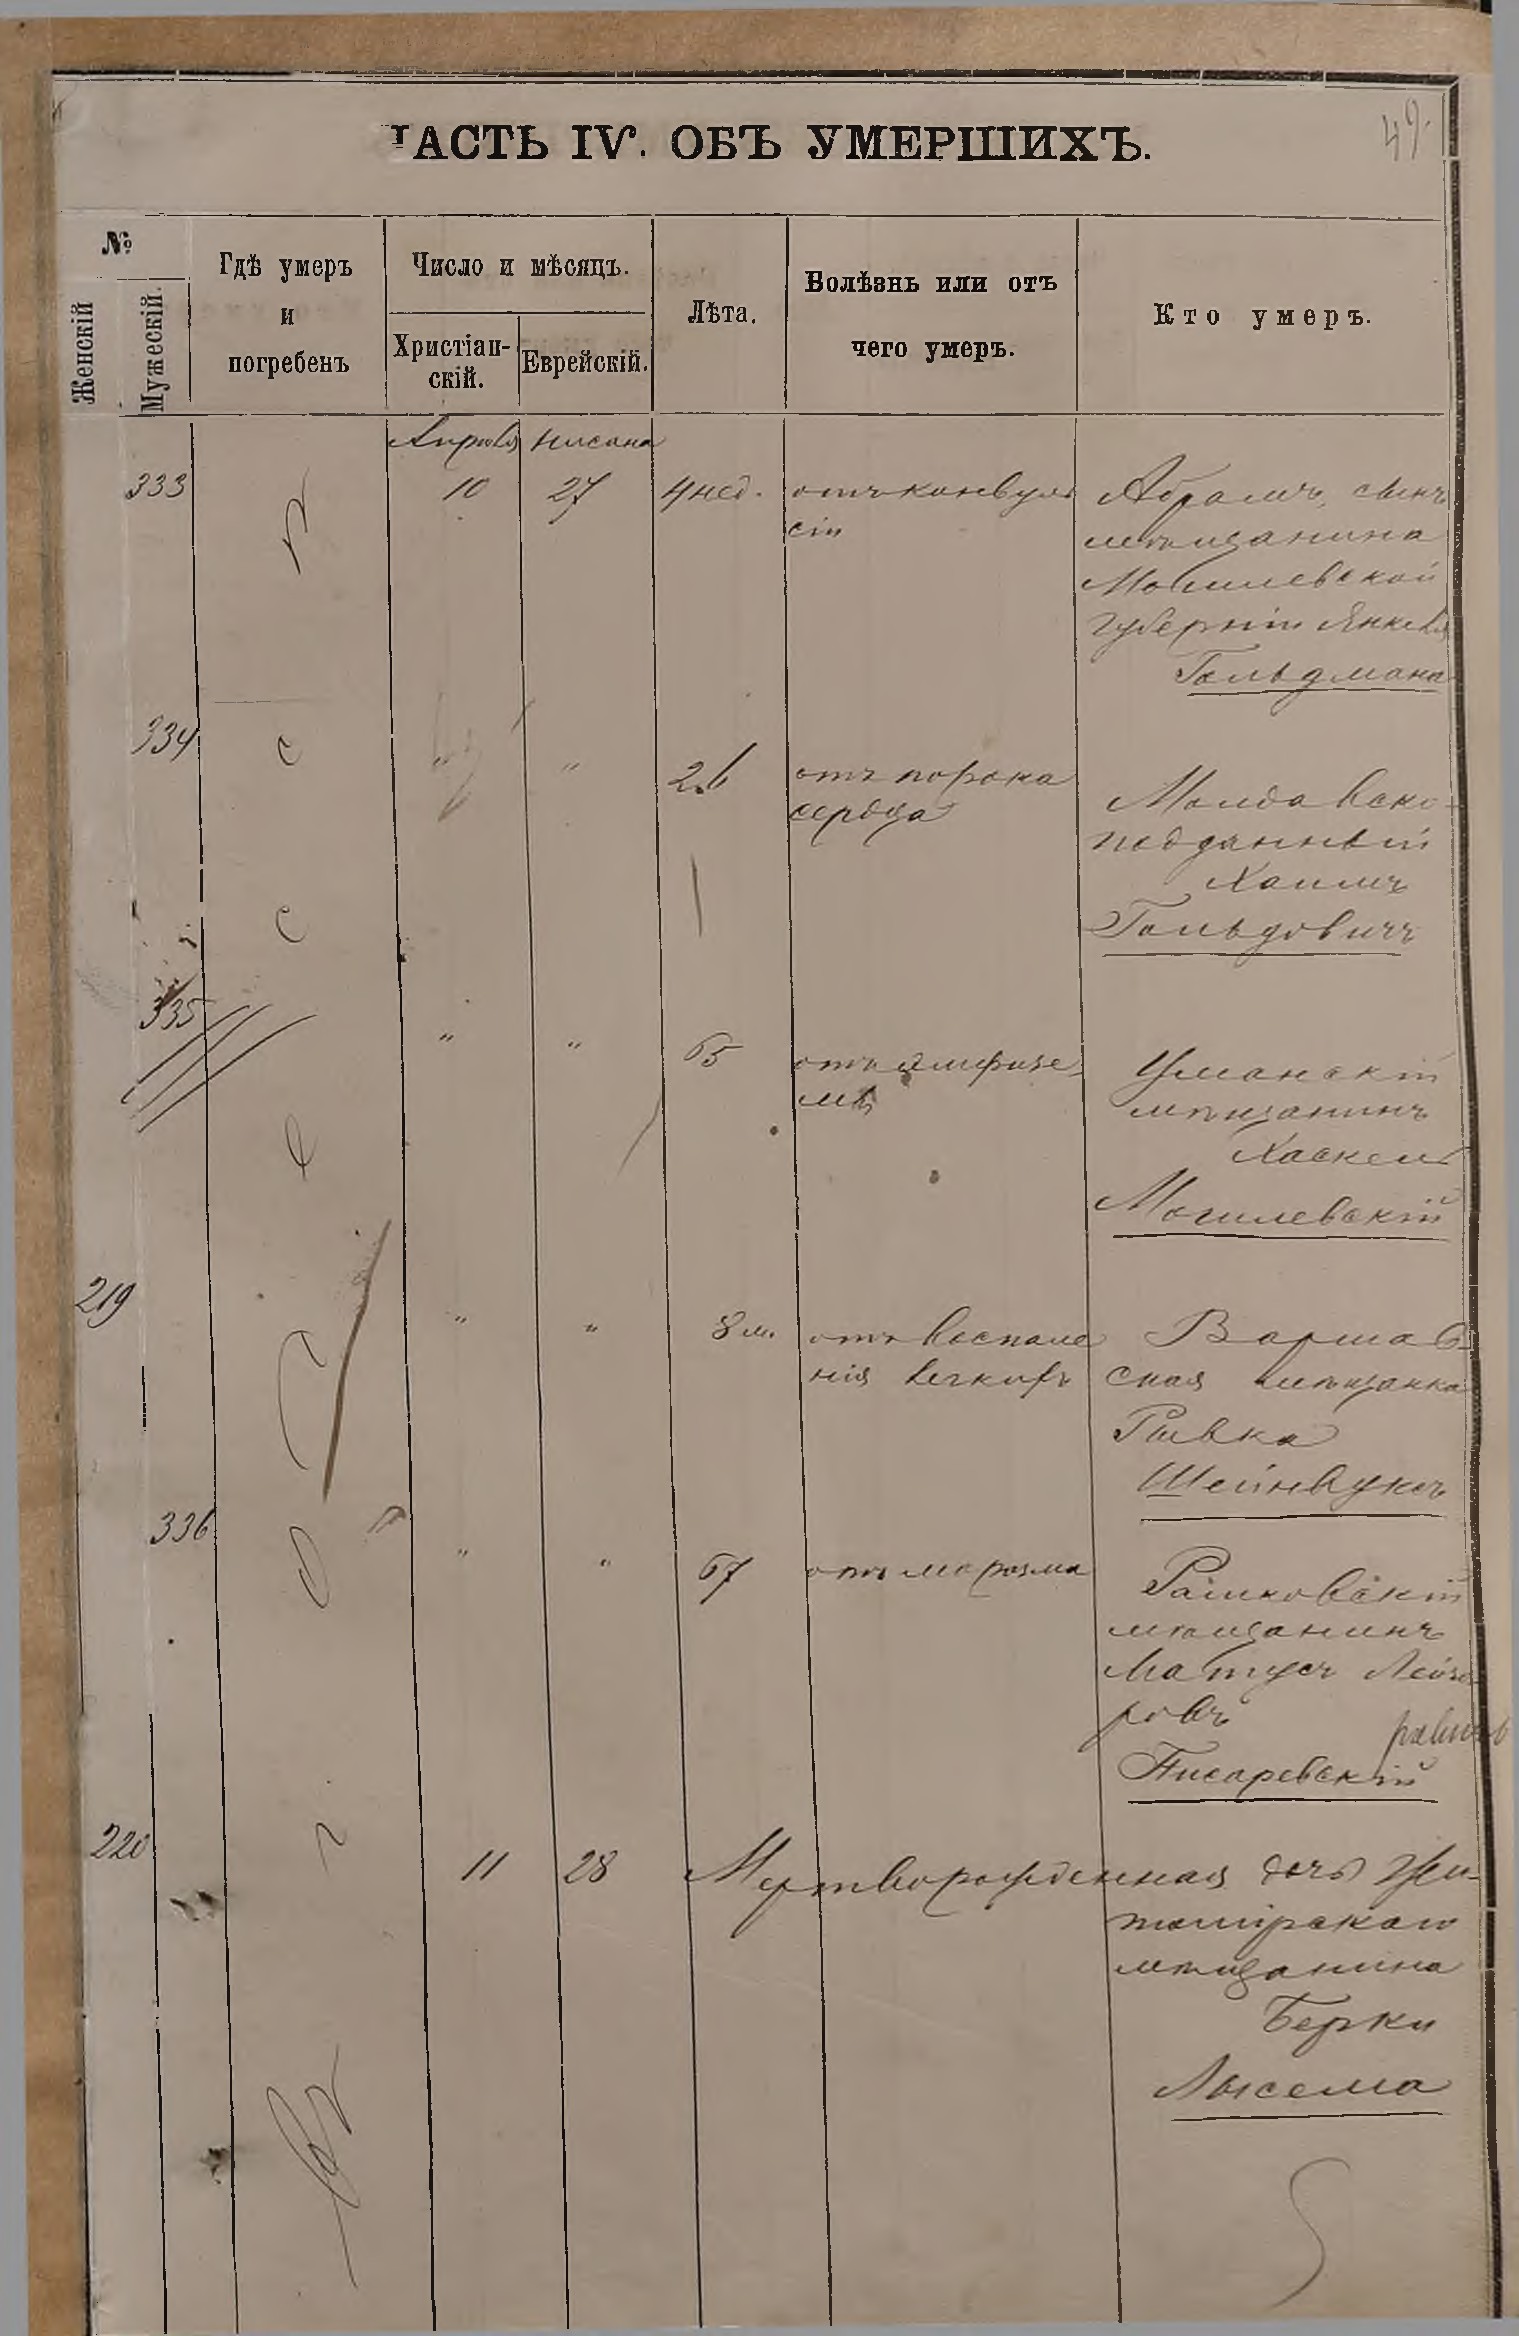 49.
ЧАСТЬ IV. ОБЪ УМЕРШИХЪ.
№
Женскій
Мужескій.
Гдѣ умеръ
и
погребенъ
Число и мѣсяцъ.
Христіан-
скій.
Еврейскій.
Лѣта.
Болѣзнь или отъ
чего умеръ.
Кто умеръ.
Апрѣля Нисана
333 10 27 4 нед. отъ конвуль
сіи
Абрамъ, сынъ
мѣщанина
Могилевской
губерніи Янкеля
Гольдмана
334 " " 26 отъ порока
сердца
Молдавско-
подданный
Хаимъ
Гольдовичъ
335 " " 65 отъ эмфизе-
мы
Уманскій
мѣщанинъ
Хаскель
Могилевскій
219 " " 8 м. отъ воспале
нія легкихъ
Варшав-
ская мѣщанка
Ривка
Шейнвуксъ
336 " " 67 отъ маразма
Рашковскій
мѣщанинъ
Матусъ Лейзе-
ровъ
Писаревскій
220 11 28 Мертворожденная дочь Жи-
томірскаго
мѣщанина
Берки
Лысема